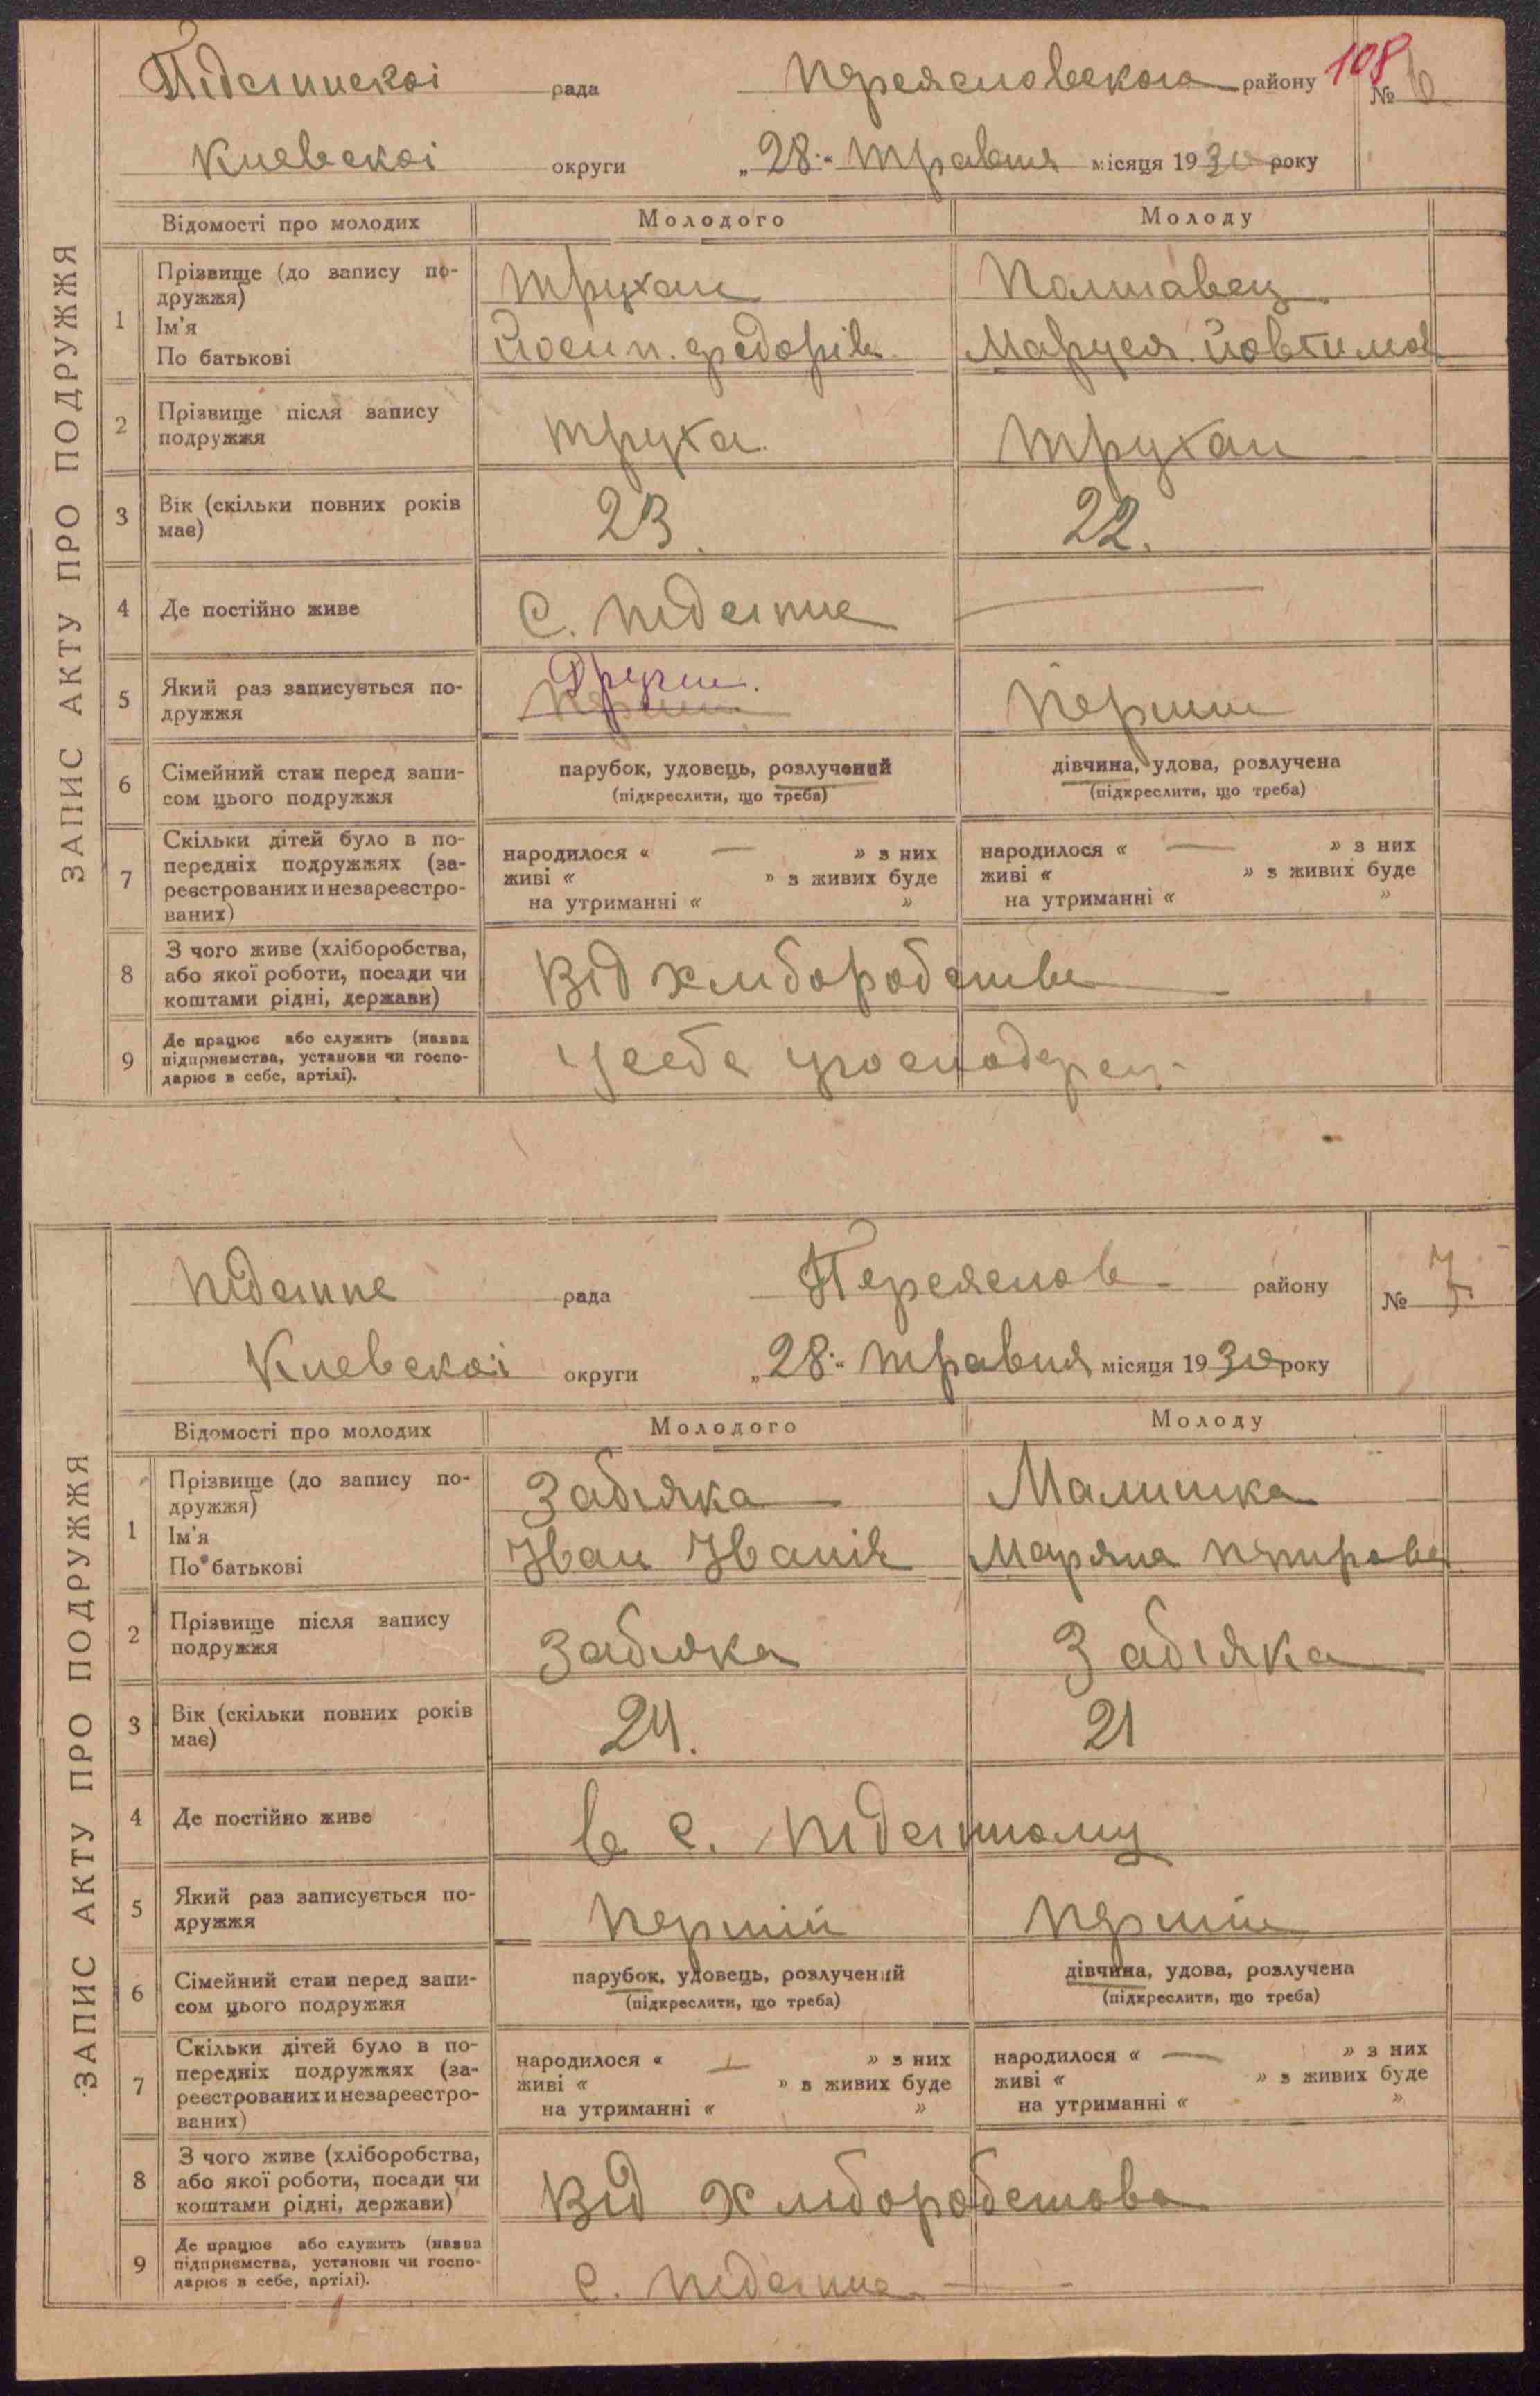 Підсиннскоі рада Переясловского району 108 № 6
Киевскоі округи „28:“ Травня місяця 1930 року
ЗАПИС АКТУ ПРО ПОДРУЖЖЯ
Відомості про молодих Молодого Молоду
1 Прізвище (до запису по-
дружжя)
Ім'я
По батькові
Трухан
Йосип. Федорів.
Полтавец.
Маруся. Йовтимов
2 Прізвище після запису
подружжя
Труха Трухан
3 Вік (скільки повних років
має)
23. 22.
4 Де постійно живе С. Підсінне —
5 Який раз записується по-
дружжя
Други.
Перший
Перши
6 Сімейний стан перед запи-
сом цього подружжя
парубок, удовець, розлучений
(підкреслити, що треба)
дівчина, удова, розлучена
(підкреслити, що треба)
7 Скільки дітей було в по-
передніх подружжях (за-
реєстрованих и незареєстро-
ваних)
народилося « — » з них
живі « » з живих буде
на утриманні « »
народилося « — » з них
живі « » з живих буде
на утриманні « »
8 З чого живе (хліборобства,
або якої роботи, посади чи
коштами рідні, держави)
Від хліборобства
9 Де працює або служить (назва
підприємства, установи чи госпо-
дарює в себе, артілі).
У себе
Підсинне рада Переяслов району № 7
Киевскоі округи „28:“ Травня місяця 1930 року
ЗАПИС АКТУ ПРО ПОДРУЖЖЯ
Відомості про молодих Молодого Молоду
1 Прізвище (до запису по-
дружжя)
Ім'я
По батькові
Забіяка
Іван Іванів
Малишка
Маряна Петрова
2 Прізвище після запису
подружжя
Забіяка Забіяка
3 Вік (скільки повних років
має)
24. 21
4 Де постійно живе в с. Підсінному
5 Який раз записується по-
дружжя
Перший Перший
6 Сімейний стан перед запи-
сом цього подружжя
парубок, удовець, розлучений
(підкреслити, що треба)
дівчина, удова, розлучена
(підкреслити, що треба)
7 Скільки дітей було в по-
передніх подружжях (за-
реєстрованих и незареєстро-
ваних)
народилося « — » з них
живі « » з живих буде
на утриманні « »
народилося « — » з них
живі « » з живих буде
на утриманні « »
8 З чого живе (хліборобства,
або якої роботи, посади чи
коштами рідні, держави)
Від хліборобстова
9 Де працює або служить (назва
підприємства, установи чи госпо-
дарює в себе, артілі).
с. Підсінне —